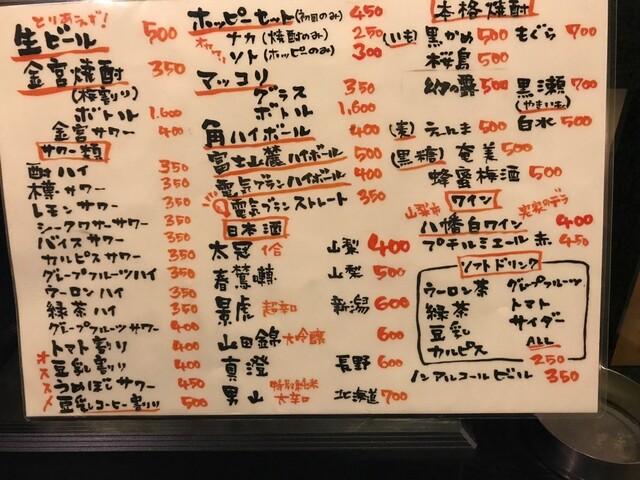 とりあえず!
生ビール 500
金宮焼酎 350
(梅割り)
ボトル 1,600
金宮サワー 400
サワー類
酎ハイ 350
樽サワー 350
レモンサワー 350
シークワサーサワー 350
バイスサワー 350
カルピスサワー 350
グレープフルーツハイ 350
ウーロンハイ 350
緑茶ハイ 350
グレープフルーツサワー 400
トマト割り 400
豆乳割り 400
オススメ
うめぼしサワー 450
豆乳コーヒー割り 500
ホッピーセット(初回のみ) 450
ナカ(焼酎のみ) 250
ソト(ホッピーのみ) 300
マッコリ
グラス 350
ボトル 1,600
角ハイボール 400
富士山麓ハイボール 500
電気ブランハイボール 400
電気ブランストレート 350
日本酒
太冠 1合 山梨 400
春鶯囀 山梨 500
景虎 超辛口 新潟 600
山田錦 大吟醸 600
真澄 長野 600
男山 特別純米 大辛口 北海道 700
本格焼酎
(いも) 黒かめ 500 もぐら 700
桜島 500
幻の露 500 黒瀬 700
(やきいも)
(麦) えんま 500 白水 500
(黒糖) 奄美 500
蜂蜜梅酒 500
ワイン
山梨市
八幡白ワイン 400
プチルミエール 赤 450
ソフトドリンク
ウーロン茶 グレープフルーツ
緑茶 トマト
豆乳 サイダー
カルピス ALL
250
ノンアルコールビール 350